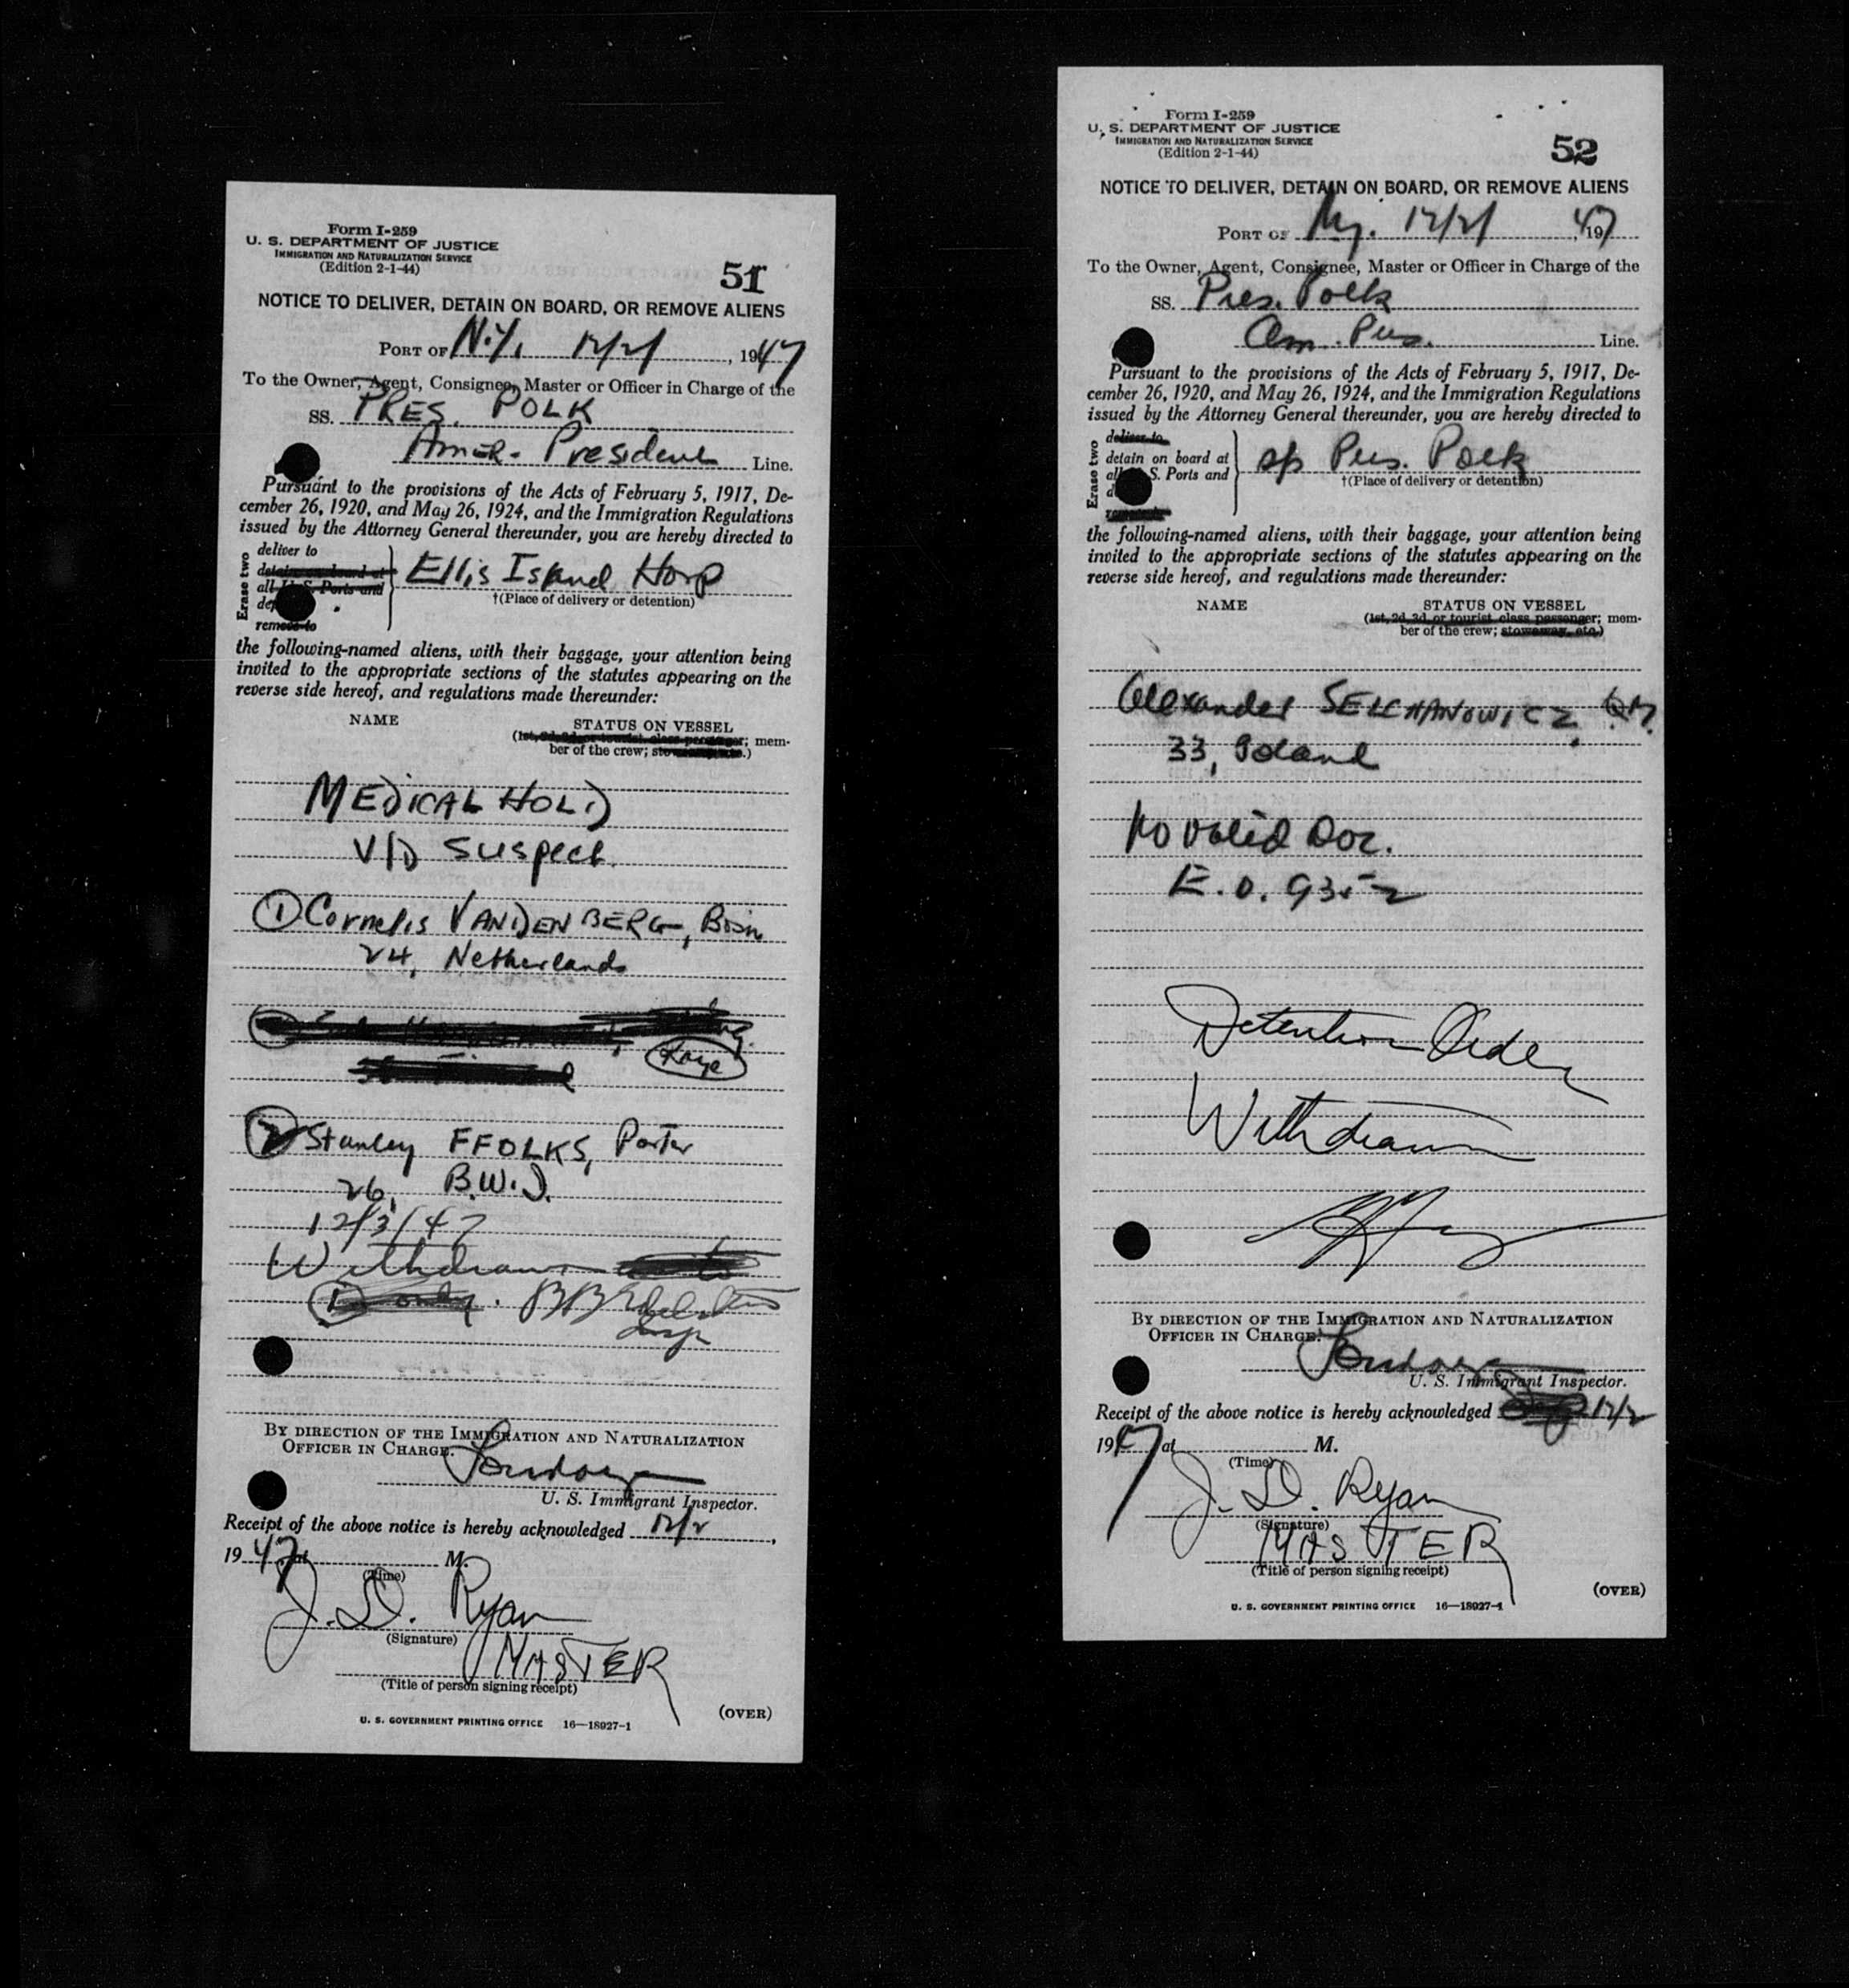 Form I-259
U. S. DEPARTMENT OF JUSTICE
IMMIGRATION AND NATURALIZATION SERVICE
(Edition 2-1-44)
51
NOTICE TO DELIVER, DETAIN ON BOARD, OR REMOVE ALIENS
PORT OF N.Y. 12/2/, 1947
To the Owner, Agent, Consignee, Master or Officer in Charge of the
SS. PRES. POLK
AMER. President Line.
Pursuant to the provisions of the Acts of February 5, 1917, De-
cember 26, 1920, and May 26, 1924, and the Immigration Regulations
issued by the Attorney General thereunder, you are hereby directed to
Erase two
deliver to
detain on board at
all U. S. Ports and
remove to
Ellis Island Hosp
†(Place of delivery or detention)
the following-named aliens, with their baggage, your attention being
invited to the appropriate sections of the statutes appearing on the
reverse side hereof, and regulations made thereunder:
NAME STATUS ON VESSEL
(1st, 2d, 3d, or tourist class passenger; mem-
ber of the crew; stowaway, etc.)
MEDICAL HOLD
V/D Suspect.
① Cornelis VANDENBERG, Bosn
24, Netherlands
② Stanley FFOLKS, Porter
26, B.W.I.
12/3/47
Withdrawn
① only.
BY DIRECTION OF THE IMMIGRATION AND NATURALIZATION
OFFICER IN CHARGE.
U. S. Immigrant Inspector.
Receipt of the above notice is hereby acknowledged 12/2,
1947 at M.
(Time)
J. D. Ryan
(Signature)
MASTER
(Title of person signing receipt)
(OVER)
U. S. GOVERNMENT PRINTING OFFICE 16—18927-1
Form I-259
U. S. DEPARTMENT OF JUSTICE
IMMIGRATION AND NATURALIZATION SERVICE
(Edition 2-1-44)
52
NOTICE TO DELIVER, DETAIN ON BOARD, OR REMOVE ALIENS
PORT OF N.Y. 12/2/, 1947
To the Owner, Agent, Consignee, Master or Officer in Charge of the
SS. Pres. Polk
Am. Pres. Line.
Pursuant to the provisions of the Acts of February 5, 1917, De-
cember 26, 1920, and May 26, 1924, and the Immigration Regulations
issued by the Attorney General thereunder, you are hereby directed to
Erase two
deliver to
detain on board at
all U. S. Ports and
remove to
Pres. Polk
†(Place of delivery or detention)
the following-named aliens, with their baggage, your attention being
invited to the appropriate sections of the statutes appearing on the
reverse side hereof, and regulations made thereunder:
NAME STATUS ON VESSEL
(1st, 2d, 3d, or tourist class passenger; mem-
ber of the crew; stowaway, etc.)
Alexander SELCHANOWICZ, QM.
33, Poland
No valid Doc.
E.O. 9352
Detention Order
Withdrawn
BY DIRECTION OF THE IMMIGRATION AND NATURALIZATION
OFFICER IN CHARGE.
U. S. Immigrant Inspector.
Receipt of the above notice is hereby acknowledged 12/2
1947 at M.
(Time)
J. D. Ryan
(Signature)
MASTER
(Title of person signing receipt)
(OVER)
U. S. GOVERNMENT PRINTING OFFICE 16—18927-1